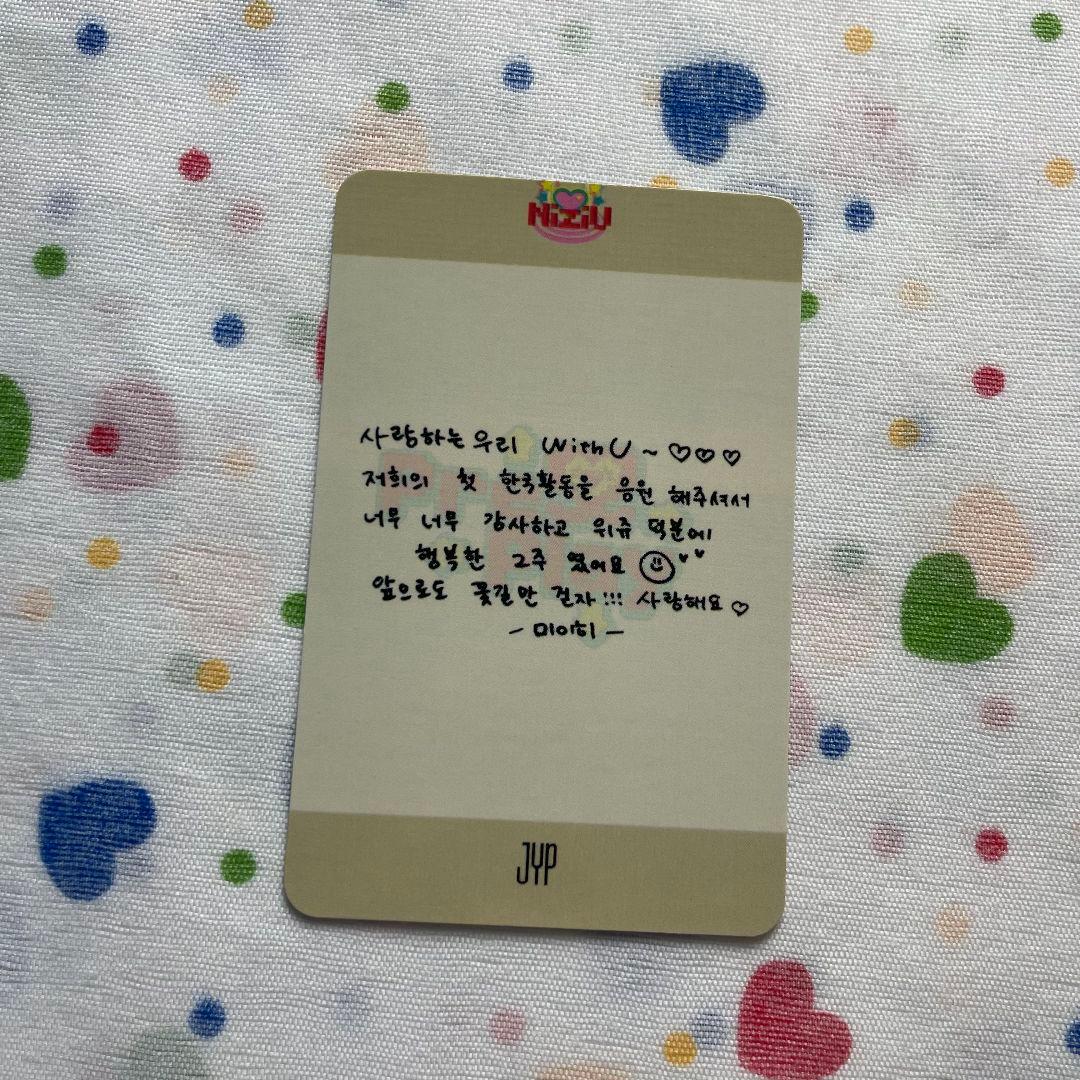 NiziU
사랑하는 우리 WithU ~ ♡♡♡
저희의 첫 한국활동을 응원 해주셔서
너무 너무 감사하고 위쥬 덕분에
행복한 2주 였어요
앞으로도 꽃길만 걷자!!! 사랑해요 ♡
- 미이히 -
JYP